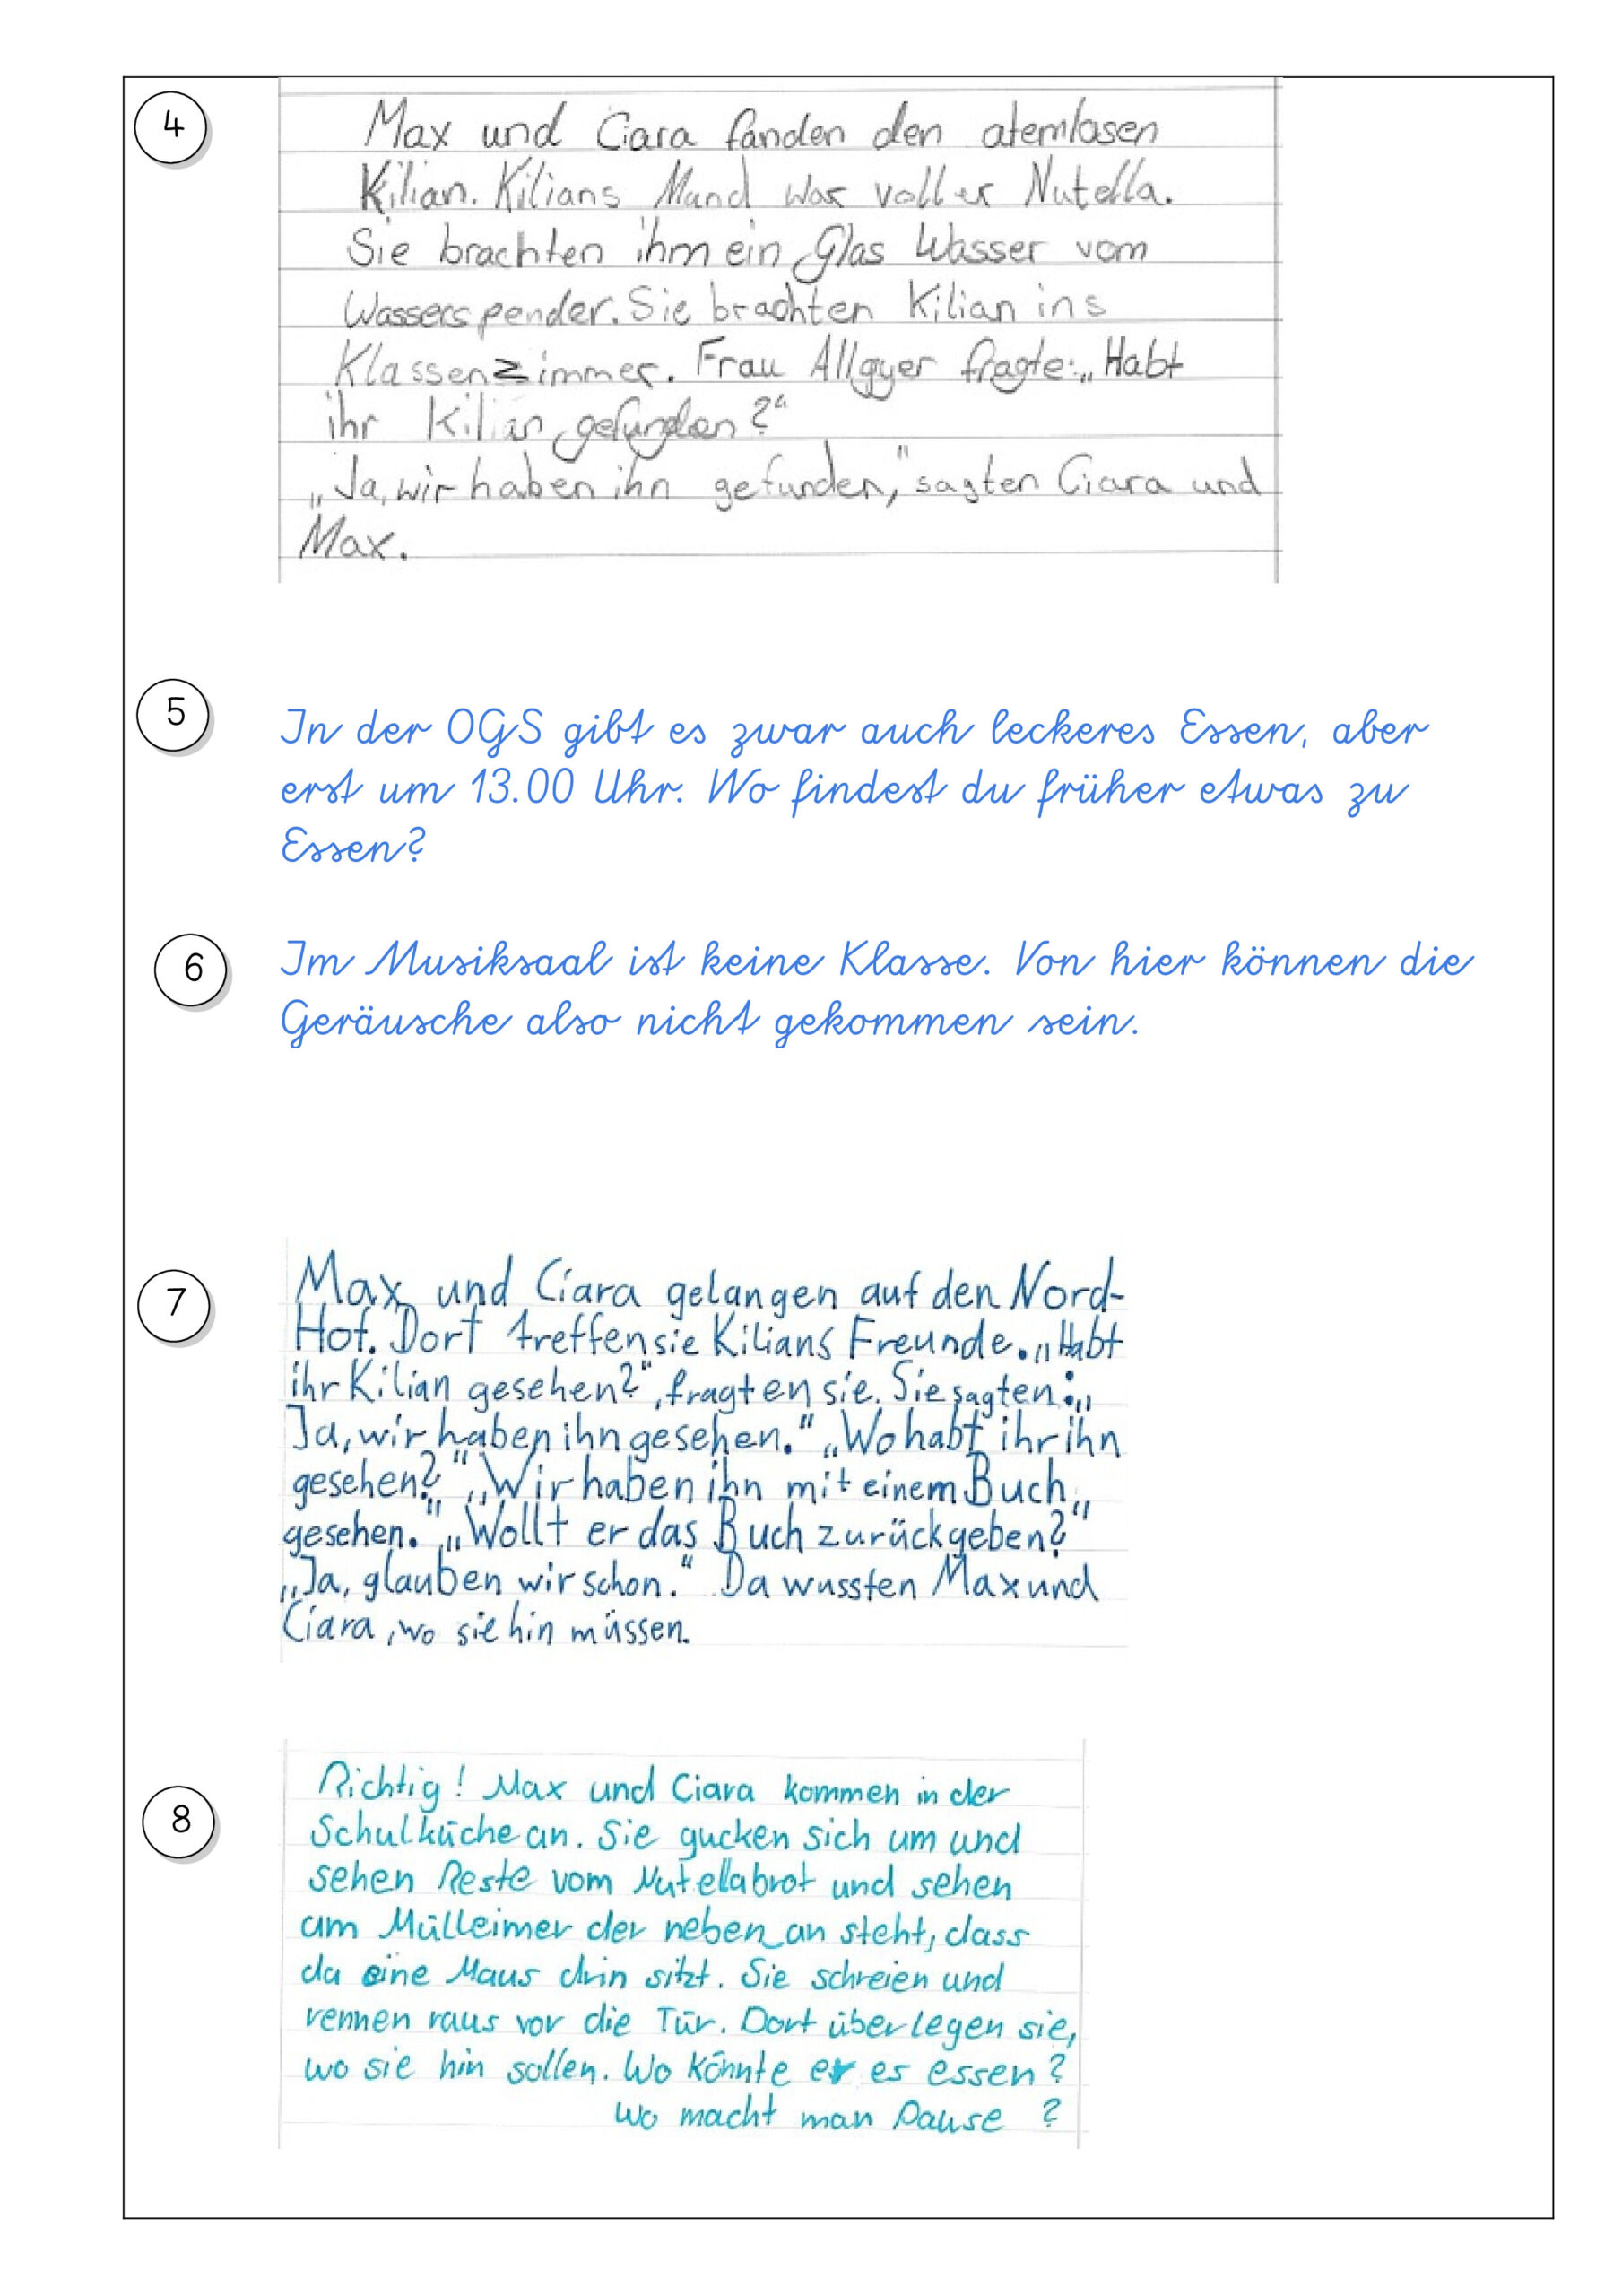 4
Max und Ciara fanden den atemlosen
Kilian. Kilians Mund war voller Nutella.
Sie brachten ihm ein Glas Wasser vom
Wasserspender. Sie brachten Kilian ins
Klassenzimmer. Frau Allgyer fragte: „Habt
ihr Kilian gefunden?“
„Ja, wir haben ihn gefunden,“ sagten Ciara und
Max.
5
In der OGS gibt es zwar auch leckeres Essen, aber
erst um 13.00 Uhr. Wo findest du früher etwas zu
Essen?
6
Im Musiksaal ist keine Klasse. Von hier können die
Geräusche also nicht gekommen sein.
7
Max und Ciara gelangen auf den Nord-
Hof. Dort treffen sie Kilians Freunde. „Habt
ihr Kilian gesehen?“, fragten sie. Sie sagten: „
Ja, wir haben ihn gesehen.“ „Wo habt ihr ihn
gesehen?“ „Wir haben ihn mit einem Buch „
gesehen.“ „Wollt er das Buch zurückgeben?“
„Ja, glauben wir schon.“ Da wussten Max und
Ciara, wo sie hin müssen.
8
Richtig! Max und Ciara kommen in der
Schulküche an. Sie gucken sich um und
sehen Reste vom Nutellabrot und sehen
am Mülleimer der neben an steht, dass
da eine Maus drin sitzt. Sie schreien und
rennen raus vor die Tür. Dort überlegen sie,
wo sie hin sollen. Wo könnte er es essen?
Wo macht man Pause ?